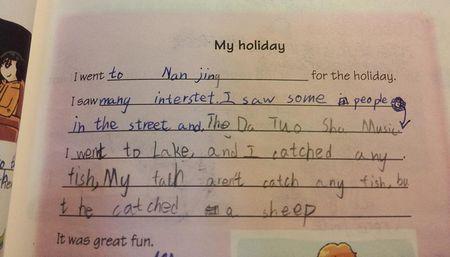 My holiday
I went to Nan jing for the holiday.
I saw many interstet. I saw some people
in the street and, The Da Tuo Sha Music
I went to Lake, and I catched any
fish, My fath arent catch any fish, bu
t he catched a sheep
It was great fun.